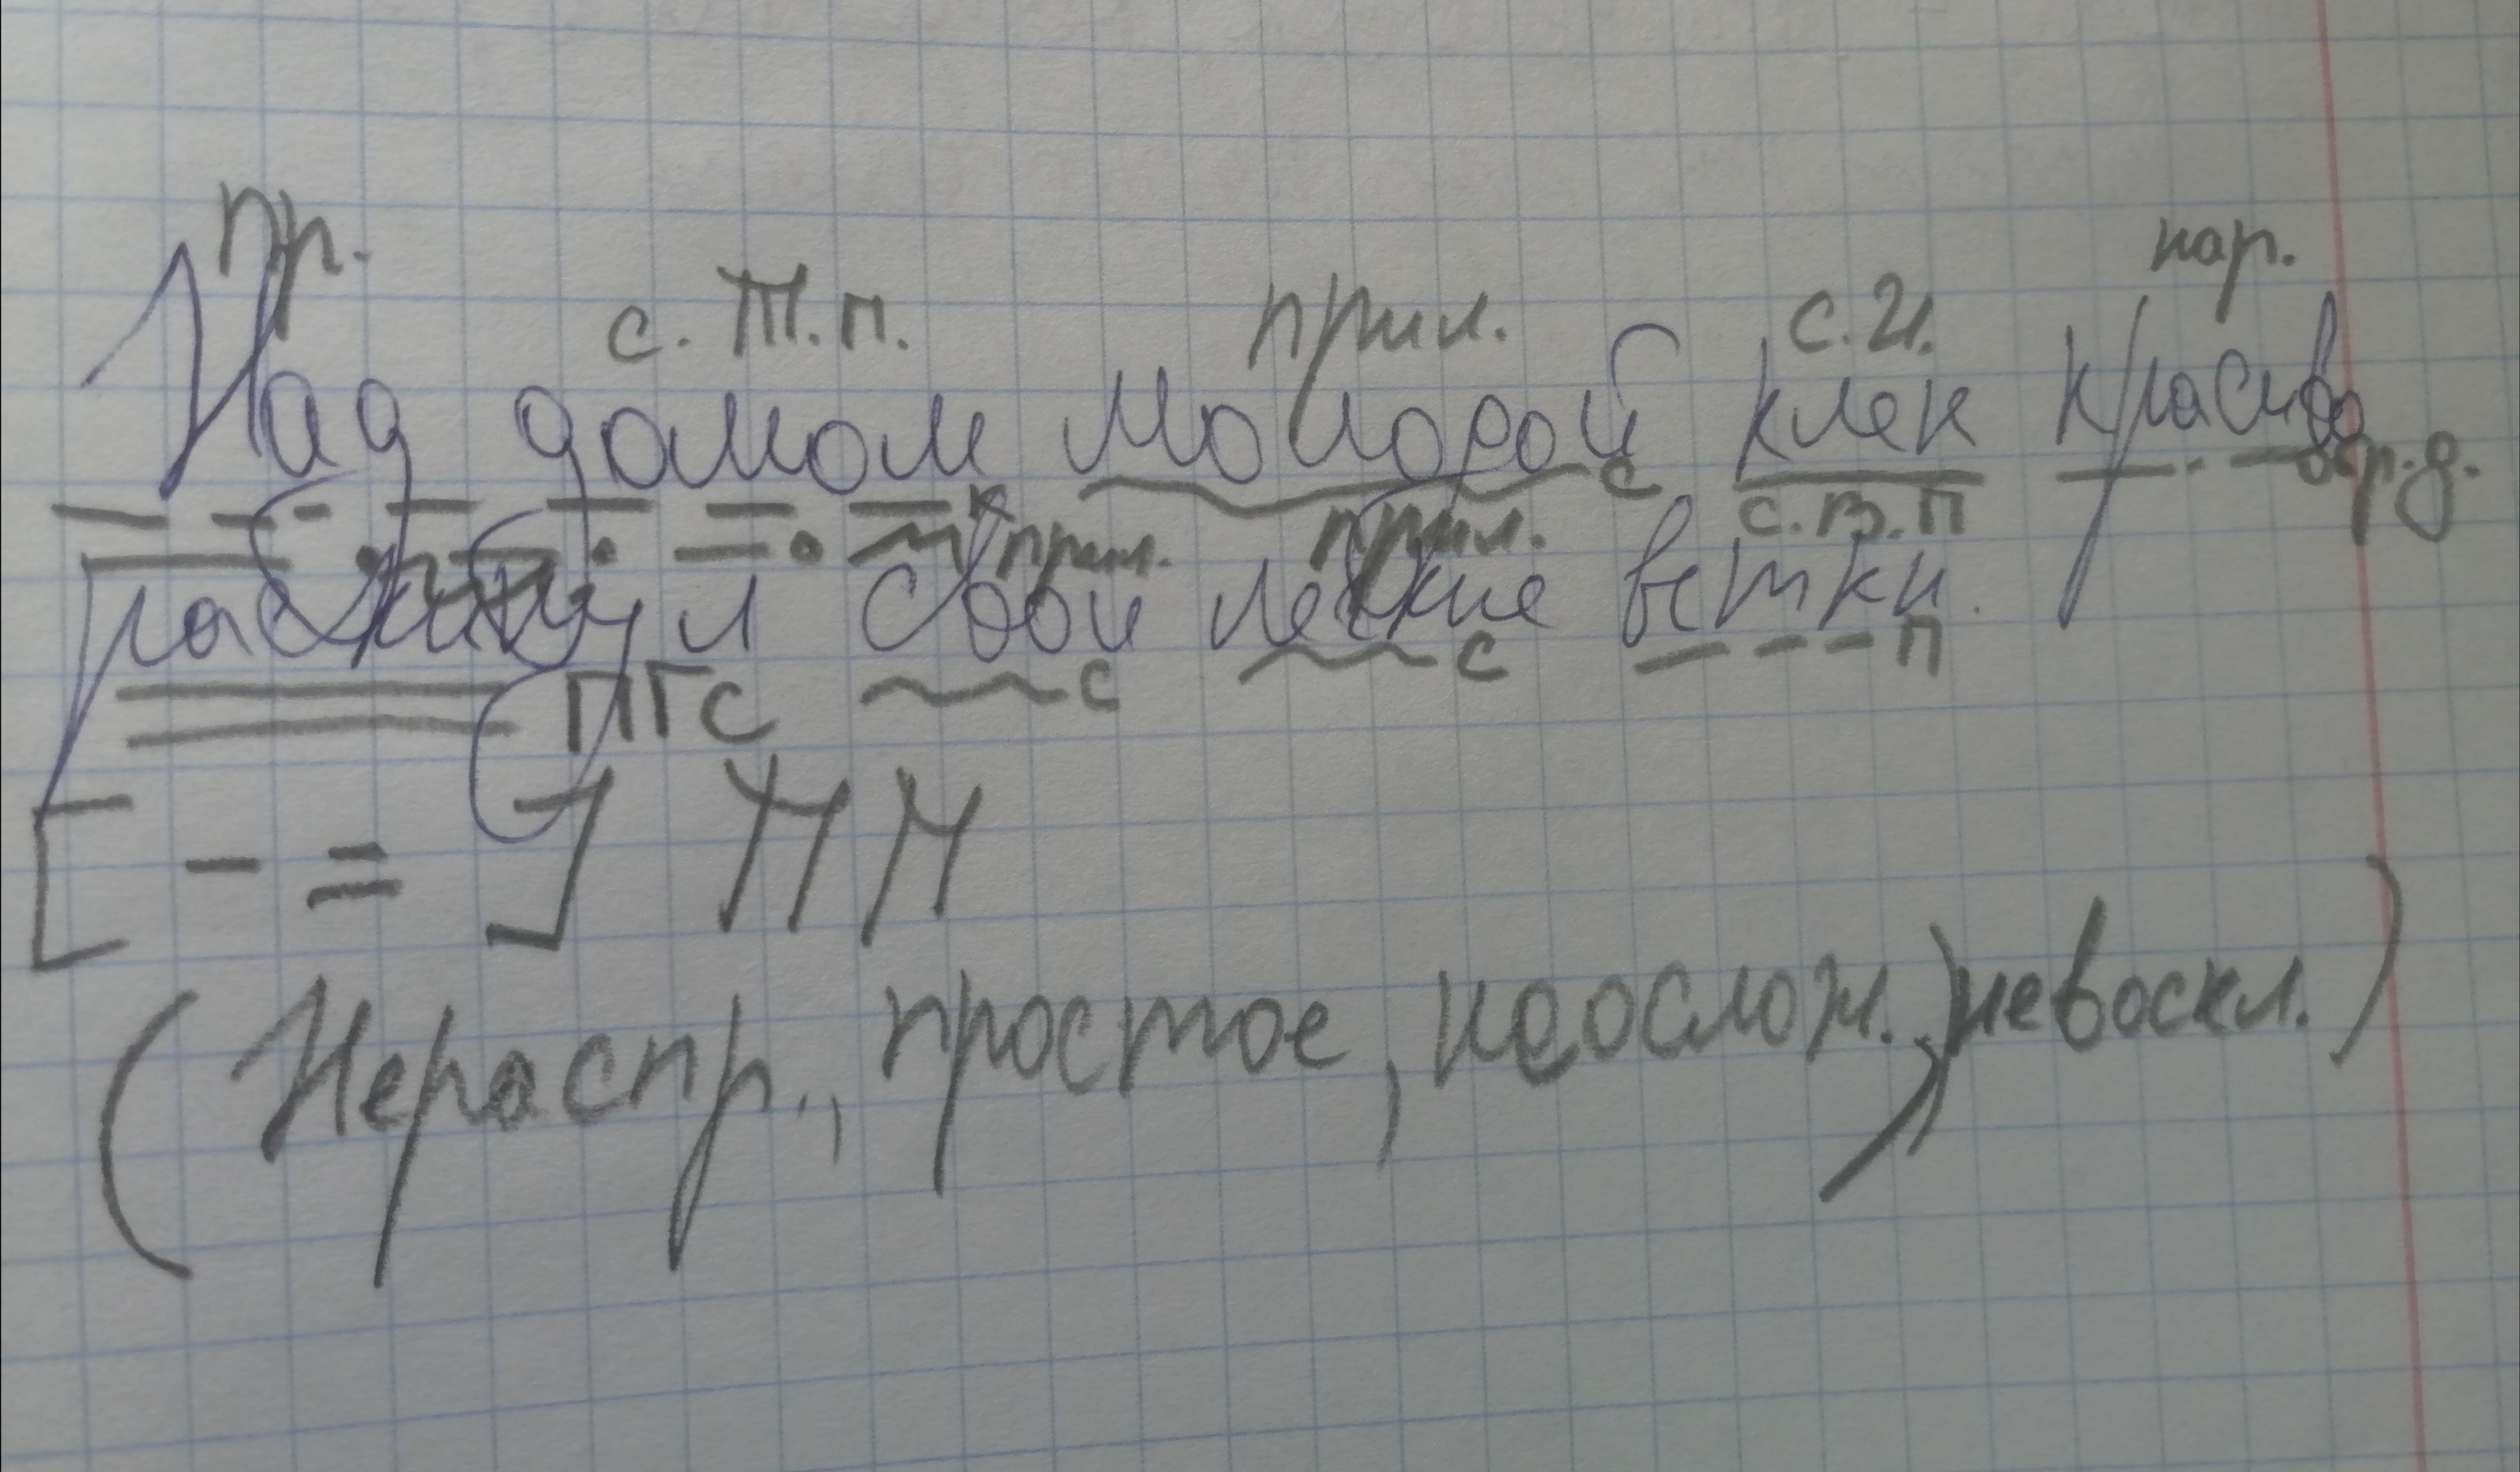 пр. с. Т. п. прил. с. И. нар.
Над домом молодой клен красиво
прил. с прил. с. В. п обр. д.
раскинул свои легкие ветки.
ПГС с с п
[ - = ]
(Нераспр., простое, неослож., невоскл.)